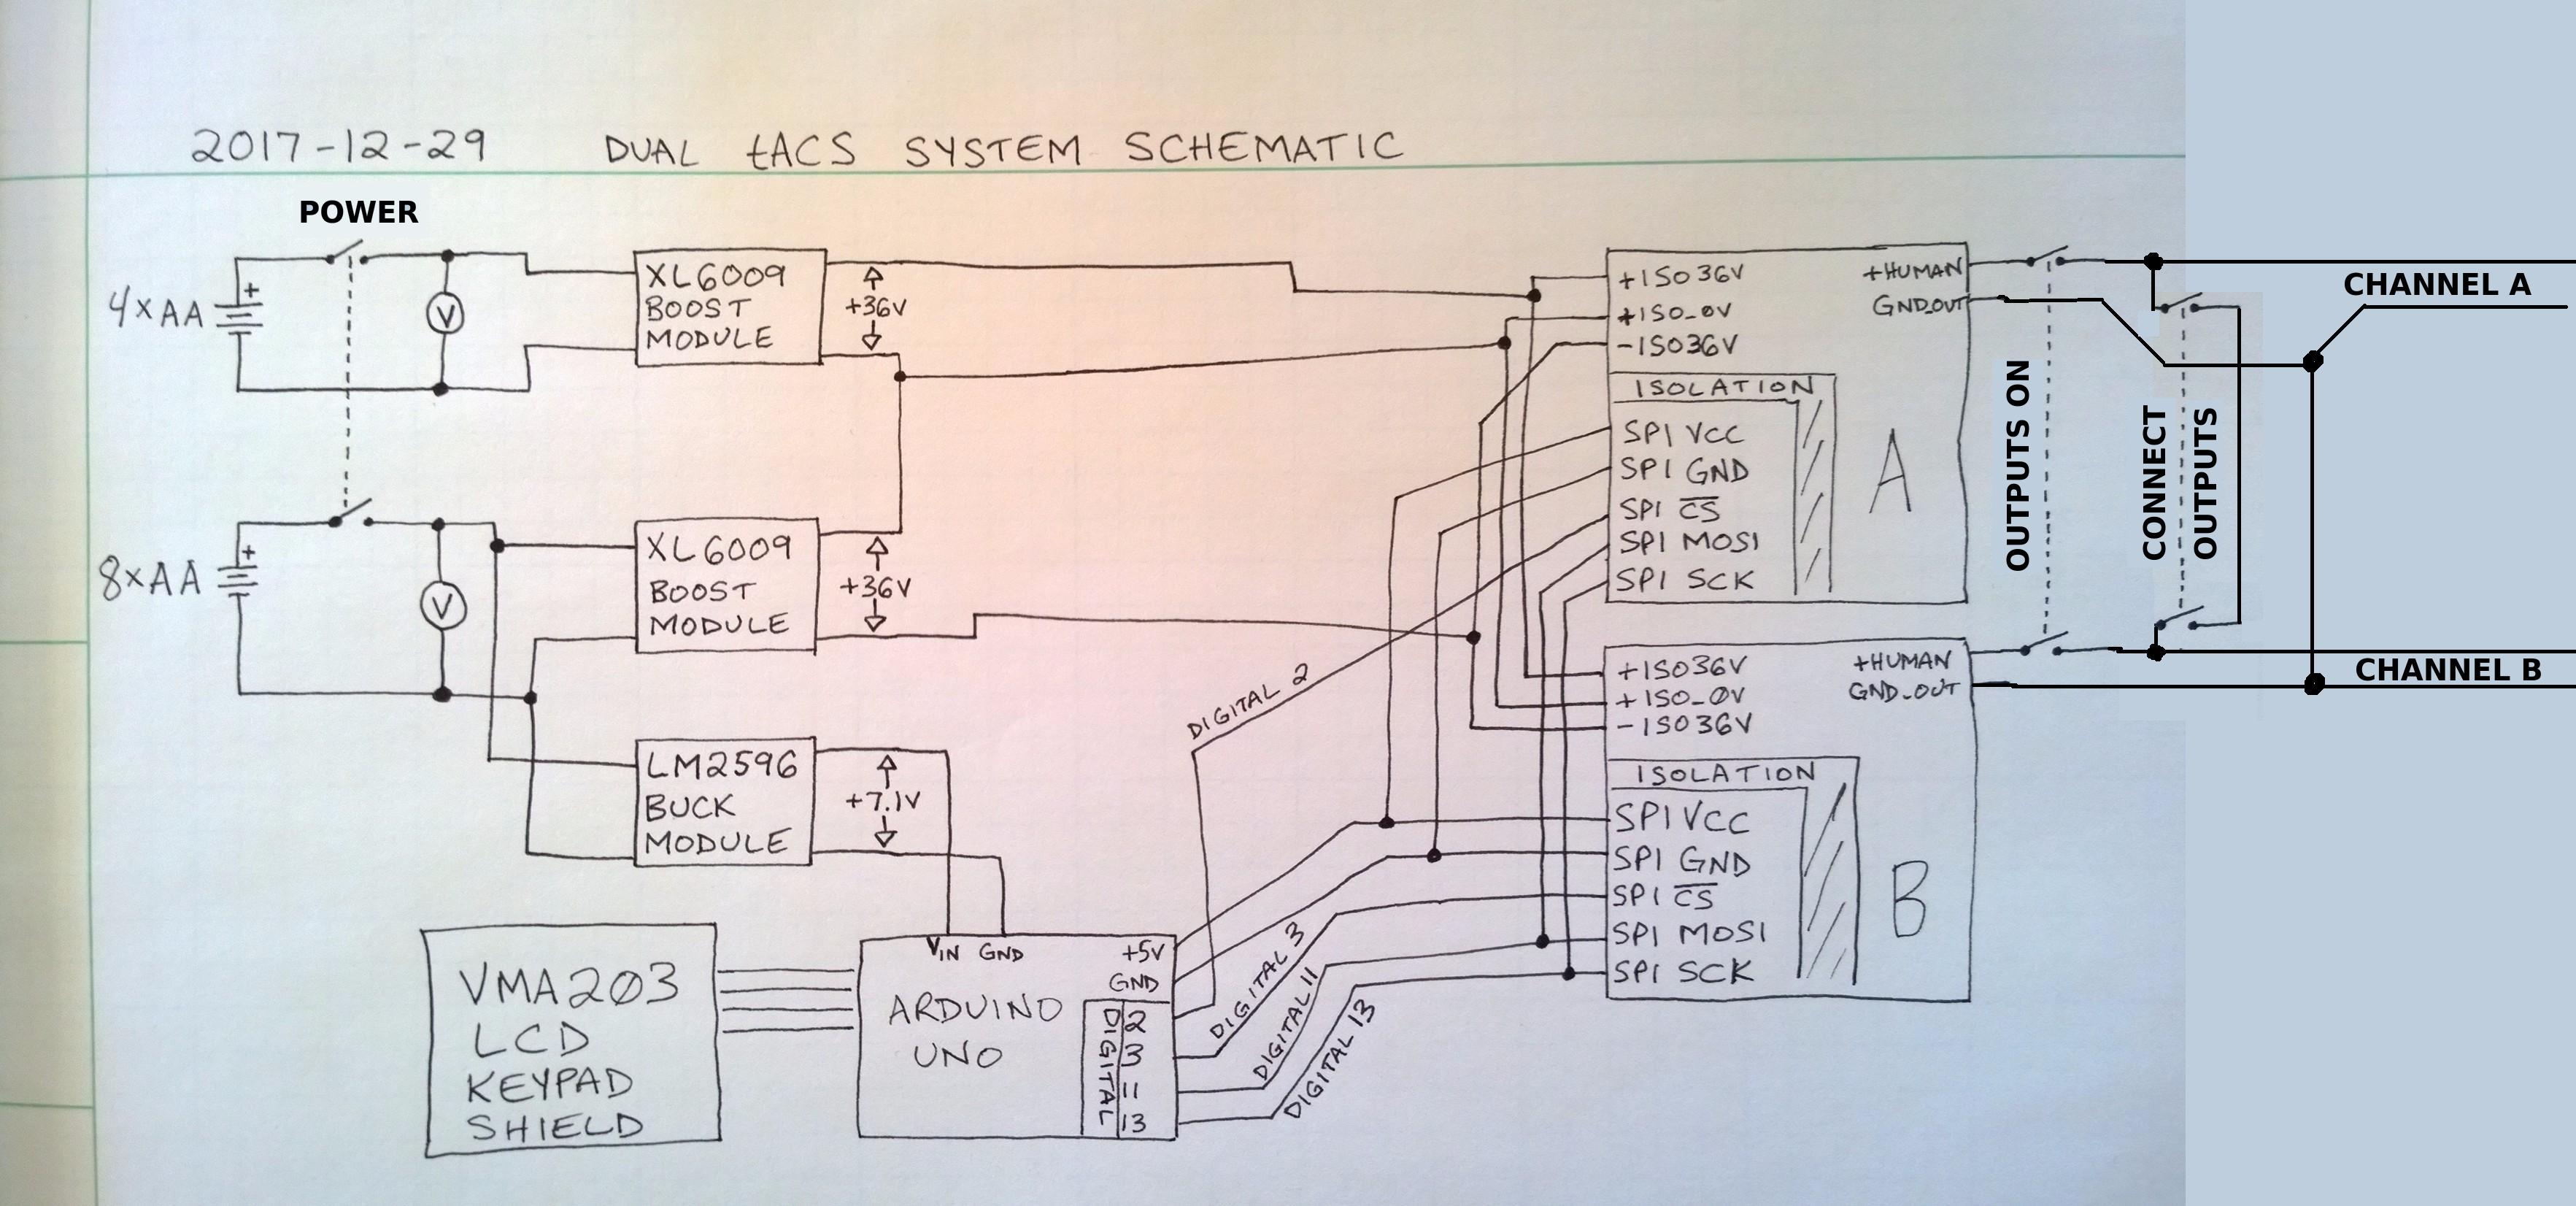 2017-12-29 DUAL tACS SYSTEM SCHEMATIC
POWER
4xAA
+
V
XL6009
BOOST
MODULE
+36V
8xAA
+
V
XL6009
BOOST
MODULE
+36V
LM2596
BUCK
MODULE
+7.1V
VMA203
LCD
KEYPAD
SHIELD
VIN GND +5V
GND
ARDUINO
UNO
DIGITAL
2
3
11
13
DIGITAL 2
DIGITAL 3
DIGITAL 11
DIGITAL 13
+ISO36V +HUMAN
+ISO_0V GND_OUT
-ISO36V
ISOLATION
SPI VCC
SPI GND
SPI C̅S̅
SPI MOSI
SPI SCK
A
+ISO36V +HUMAN
+ISO_0V GND_OUT
-ISO36V
ISOLATION
SPI VCC
SPI GND
SPI C̅S̅
SPI MOSI
SPI SCK
B
OUTPUTS ON
CONNECT
OUTPUTS
CHANNEL A
CHANNEL B